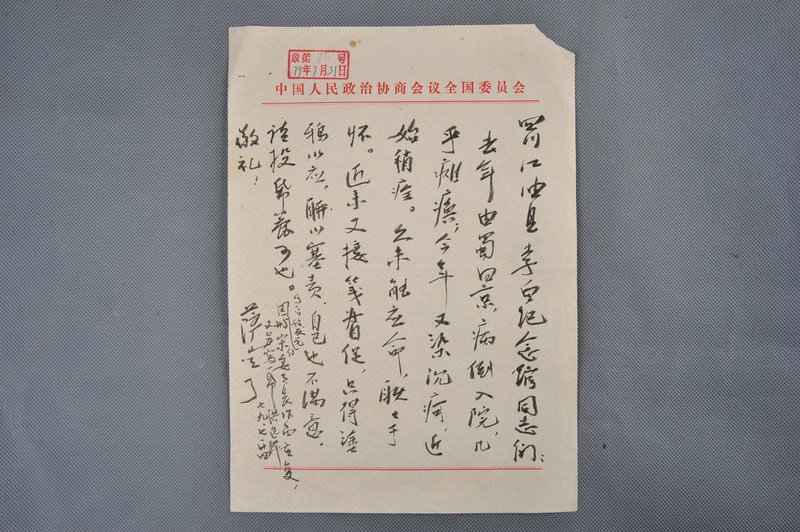 政第 号
79年7月31日
中国人民政治协商会议全国委员会
四川江油县李白纪念馆同志们：
去年由蜀回京，病倒入院，几
乎瘫痪，今年又染沉疴，近
始稍痊。久未能应命，耿耿于
怀。近来又接笺督促，只得涂
鸦以应，聊以塞责，自己也不满意，
请投纸篓可也。
敬礼！
萧